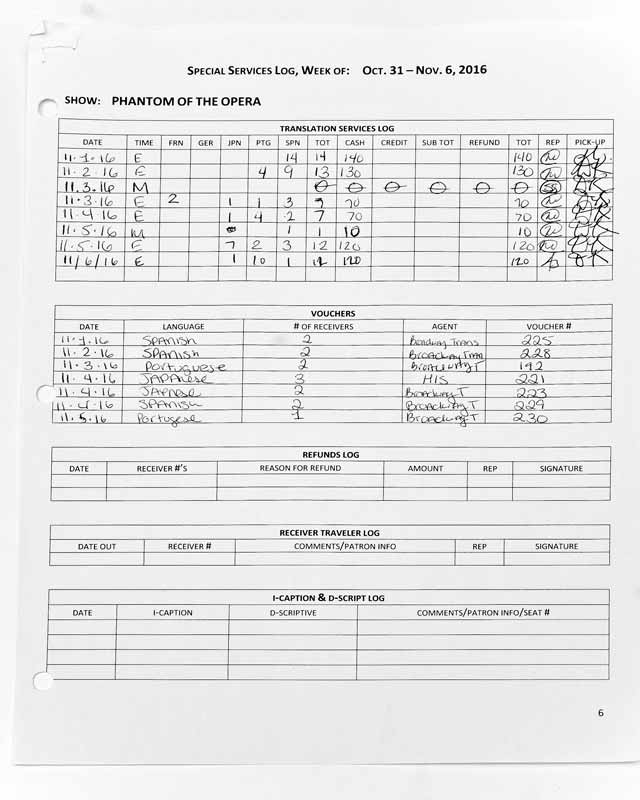 SPECIAL SERVICES LOG, WEEK OF: OCT. 31 – NOV. 6, 2016
SHOW: PHANTOM OF THE OPERA
TRANSLATION SERVICES LOG
DATE TIME FRN GER JPN PTG SPN TOT CASH CREDIT SUB TOT REFUND TOT REP PICK-UP
11.1.16 E 14 14 140 140
11.2.16 E 4 9 13 130 130
11.3.16 M 0 0 0 0 0 0
11.3.16 E 2 1 1 3 7 70 70
11.4.16 E 1 4 2 7 70 70
11.5.16 M 1 1 10 10
11.5.16 E 7 2 3 12 120 120
11/6/16 E 1 10 1 12 120 120
VOUCHERS
DATE LANGUAGE # OF RECEIVERS AGENT VOUCHER #
11.1.16 SPANISH 2 Trans 225
11.2.16 SPANISH 2 Broadway Trans 228
11.3.16 Portuguese 2 Broadway T 192
11.4.16 JAPANese 3 HIS 221
11.4.16 JAPNese 2 Broadway T 223
11.4.16 SPANISH 2 Broadway T 229
11.5.16 Portugese 1 Broadway T 230
REFUNDS LOG
DATE RECEIVER #'S REASON FOR REFUND AMOUNT REP SIGNATURE
RECEIVER TRAVELER LOG
DATE OUT RECEIVER # COMMENTS/PATRON INFO REP SIGNATURE
I-CAPTION & D-SCRIPT LOG
DATE I-CAPTION D-SCRIPTIVE COMMENTS/PATRON INFO/SEAT #
6